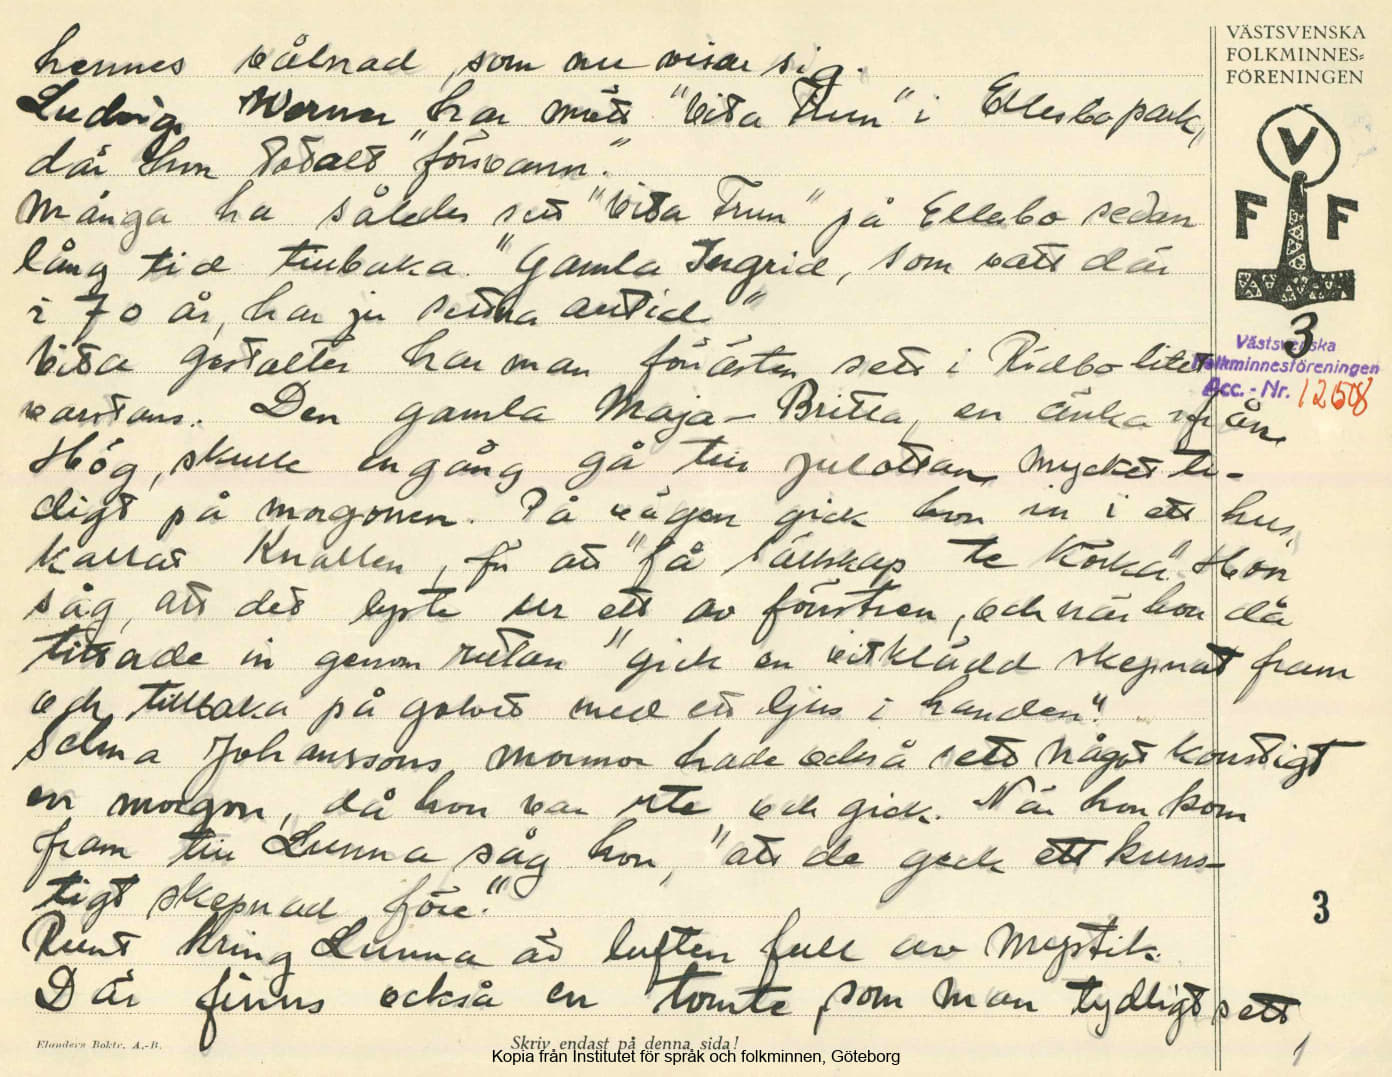 hennes vålnad, som nu visar sig.
Ludvig Werner har mött "Vita Frun" i Ellesbo park,
där hon totalt "försvann."
Många ha således sett "Vita Frun" på Ellesbo sedan
lång tid tillbaka. "Gamla Ingrid, som vatt där
i 70 år, har ju settna alltid"
Vita gestalter har man förresten sett i Rödbo litet
varstans. Den gamla Maja-Britta, en änka från
Hög, skulle en gång gå till julottan, mycket ti-
digt på morgonen. På vägen gick hon in i ett hus,
kallat Knallen, för att "få sällskap te körka". Hon
såg, att det lyste ur ett av fönstren, och när hon då
tittade in genom rutan "gick en vitklädd skepnat fram
och tillbaka på golvet med ett ljus i handen".
Selma Johanssons mormor hade också sett något konstigt
en morgon, då hon var ute och gick. När hon kom
fram till Lunna såg hon, "att de geck ett kuns-
tigt skepnad före."
Runt kring Lunna är luften full av mystik.
Där finns också en tomte, som man tydligt sett
VÄSTSVENSKA
FOLKMINNES-
FÖRENINGEN
V
F F
3
Västsvenska
Folkminnesföreningen
Acc. - Nr. 12508
3
Elanders Boktr. A.-B.
Skriv endast på denna sida!
Kopia från Institutet för språk och folkminnen, Göteborg